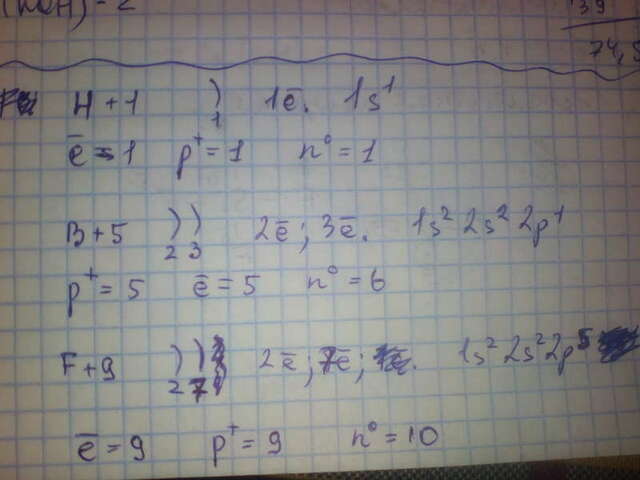 (KOH) - 2
39
74,5
H +1 ) 1 1ē. 1s¹
ē = 1 p⁺ = 1 n⁰ = 1
B +5 ) ) 2 3 2ē; 3ē. 1s² 2s² 2p¹
p⁺ = 5 ē = 5 n⁰ = 6
F +9 ) ) 2 7 2ē; 7ē; 1s² 2s² 2p⁵
ē = 9 p⁺ = 9 n⁰ = 10